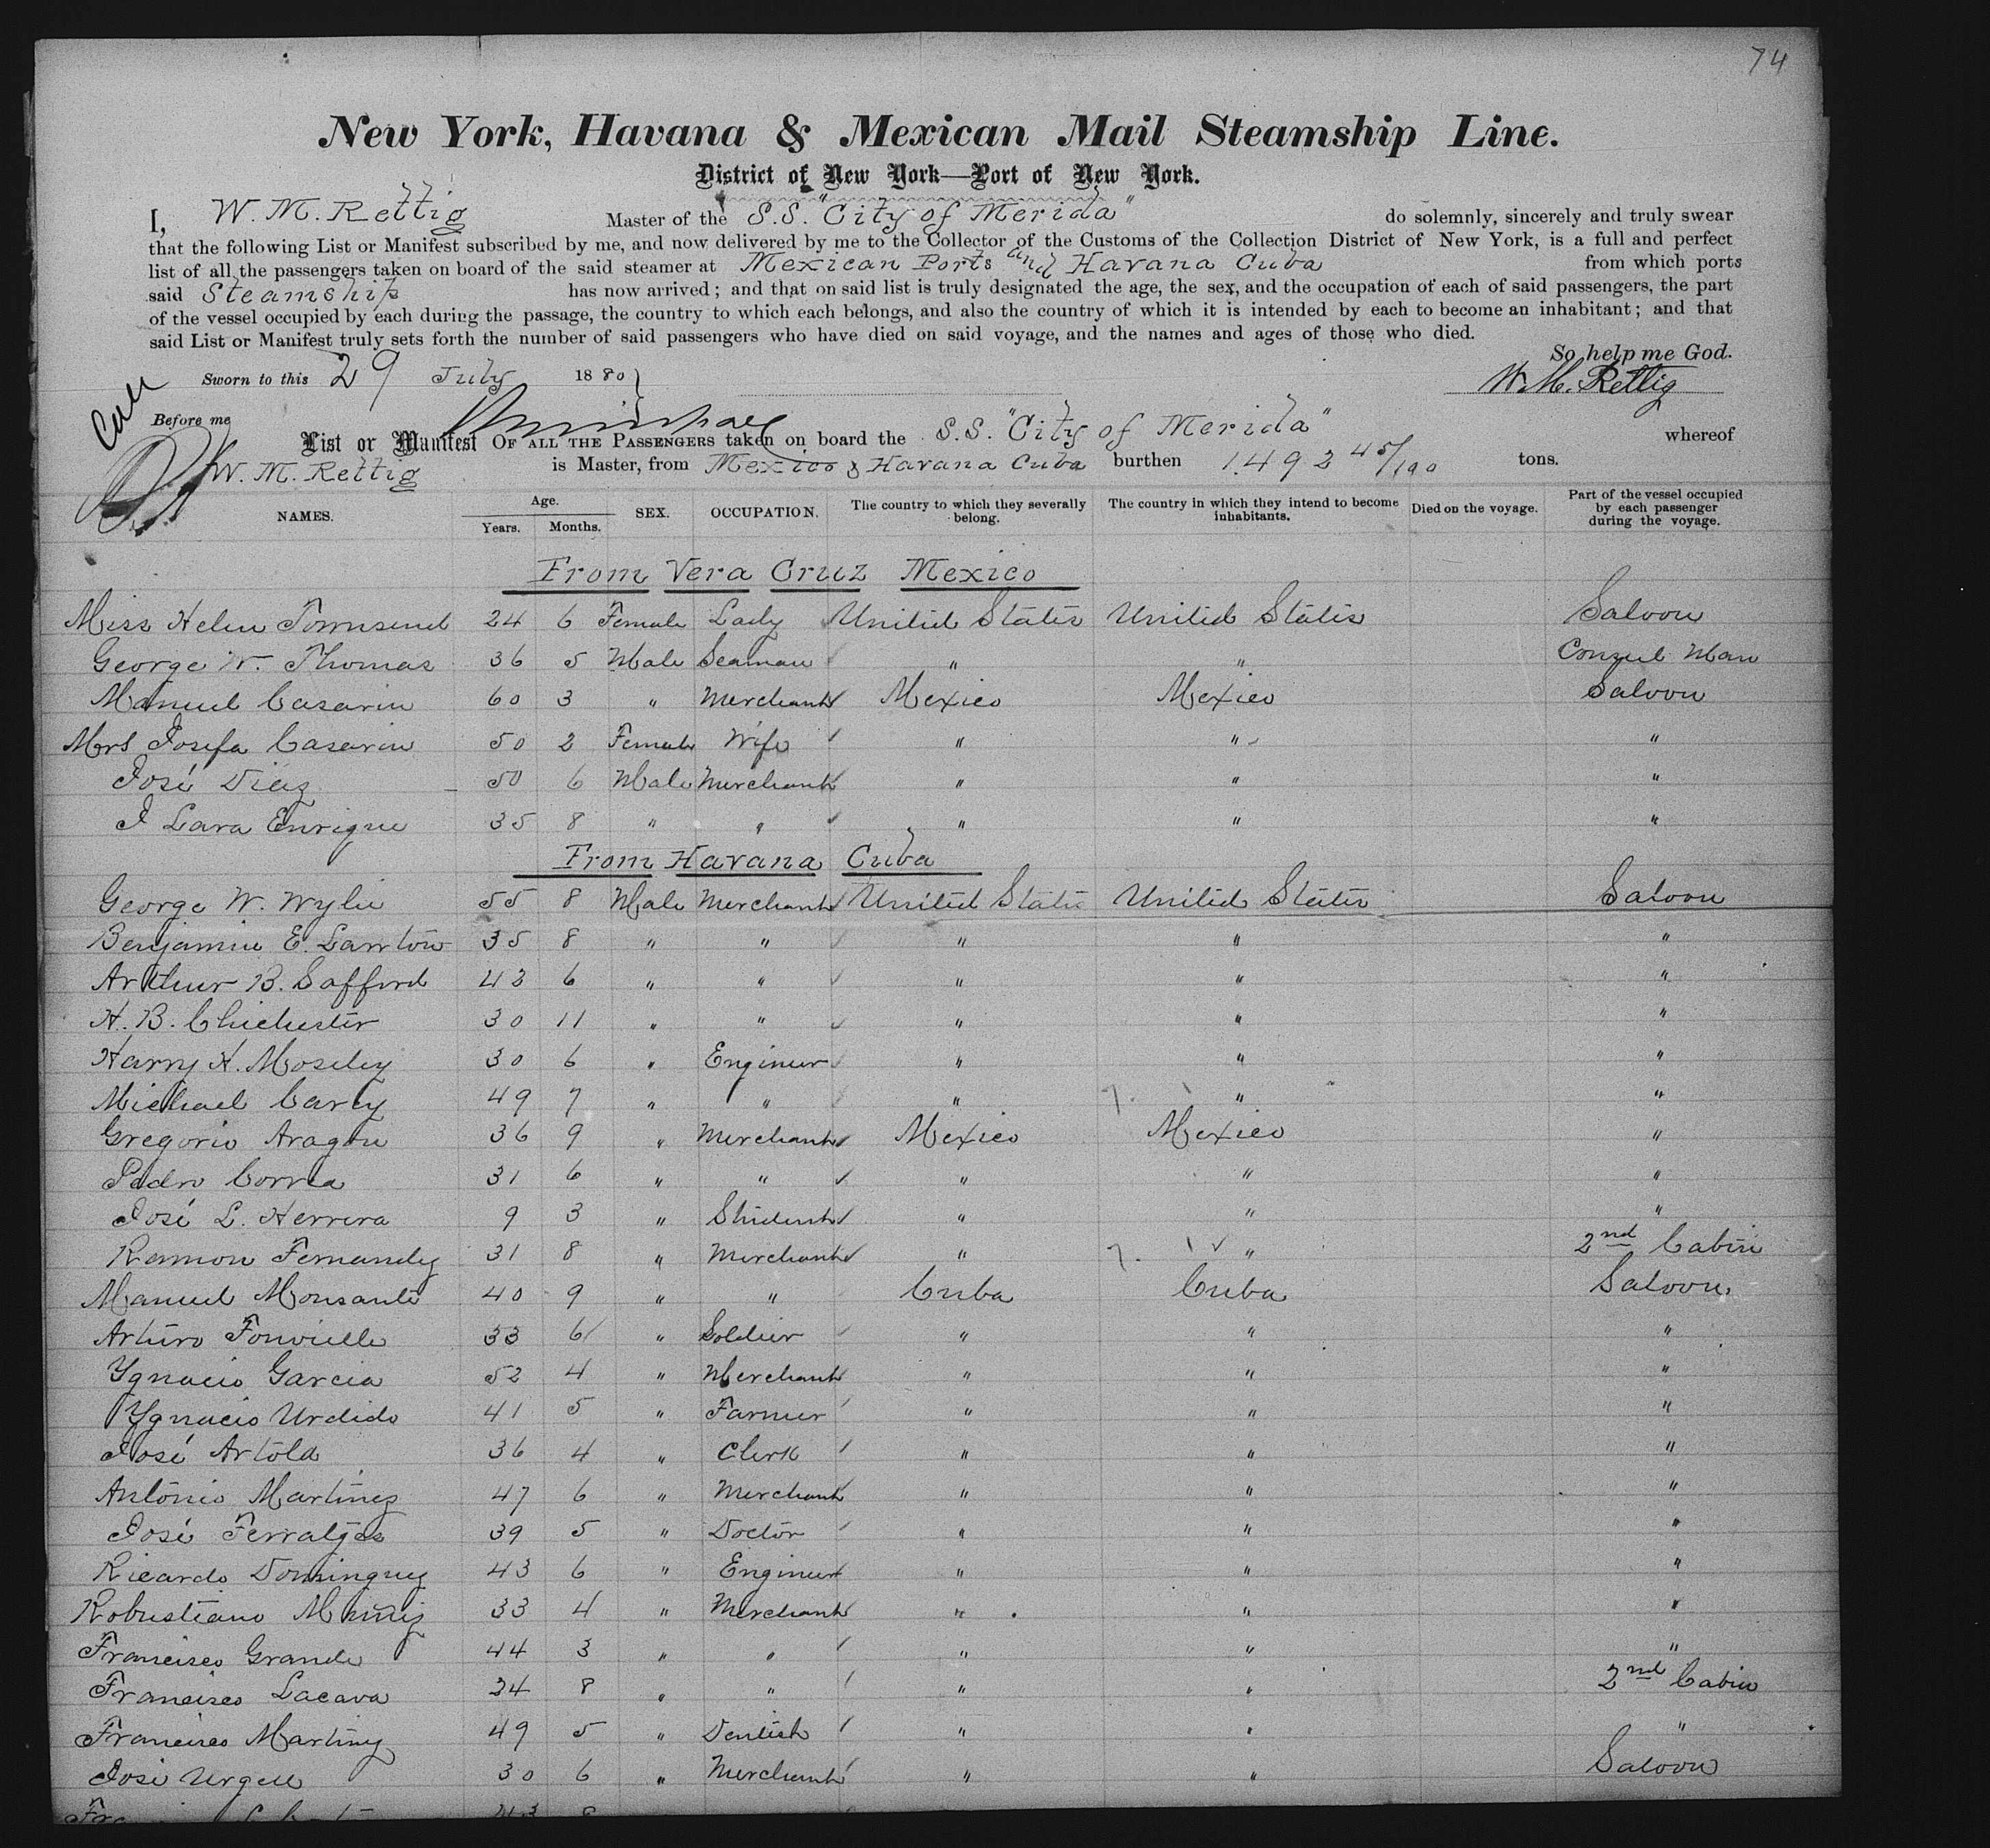 74
New York, Havana & Mexican Mail Steamship Line.
District of New York—Port of New York.
I, W. M. Rettig Master of the S.S. "City of Merida" do solemnly, sincerely and truly swear
that the following List or Manifest subscribed by me, and now delivered by me to the Collector of the Customs of the Collection District of New York, is a full and perfect
list of all the passengers taken on board of the said steamer at Mexican Ports and Havana Cuba from which ports
said Steamship has now arrived; and that on said list is truly designated the age, the sex, and the occupation of each of said passengers, the part
of the vessel occupied by each during the passage, the country to which each belongs, and also the country of which it is intended by each to become an inhabitant; and that
said List or Manifest truly sets forth the number of said passengers who have died on said voyage, and the names and ages of those who died.
So help me God.
Sworn to this 29 July 1880 W. M. Rettig
Before me
List or Manifest OF ALL THE PASSENGERS taken on board the S.S. "City of Merida" whereof
W. M. Rettig is Master, from Mexico & Havana Cuba burthen 1492 45/100 tons.
NAMES. Age. Years. Months. SEX. OCCUPATION. The country to which they severally belong. The country in which they intend to become inhabitants. Died on the voyage. Part of the vessel occupied by each passenger during the voyage.
From Vera Cruz Mexico
Miss Helen Townsend 24 6 Female Lady United States United States Saloon
George W. Thomas 36 5 Male Seaman " " Consul Man
Manuel Casarin 60 3 " Merchant Mexico Mexico Saloon
Mrs Josefa Casarin 50 2 Female Wife " " "
José Diaz 50 6 Male Merchant " " "
J Lara Enrique 35 8 " " " " "
From Havana Cuba
George W. Wylie 55 8 Male Merchant United States United States Saloon
Benjamin E. Lawton 35 8 " " " " "
Arthur B. Safford 42 6 " " " " "
H. B. Chichester 30 11 " " " " "
Harry H. Moseley 30 6 " Engineer " " "
Michael Carey 49 7 " " " " "
Gregorio Aragon 36 9 " Merchant Mexico Mexico "
Pedro Correa 31 6 " " " " "
José L. Herrera 9 3 " Student " " "
Ramon Fernandez 31 8 " Merchant " " 2nd Cabin
Manuel Monsante 40 9 " " Cuba Cuba Saloon
Arturo Fonvielle 33 6 " Soldier " " "
Ygnacio Garcia 52 4 " Merchant " " "
Ygnacio Urdido 41 5 " Farmer " " "
José Artola 36 4 " Clerk " " "
Antonio Martinez 47 6 " Merchant " " "
José Ferralges 39 5 " Doctor " " "
Ricardo Dominguez 43 6 " Engineer " " "
Robustiano Muñiz 33 4 " Merchant " " "
Francisco Grande 44 3 " " " " "
Francisco Lacava 24 8 " " " " 2nd Cabin
Francisco Martinez 49 5 " Dentist " " "
José Urgell 30 6 " Merchant " " Saloon